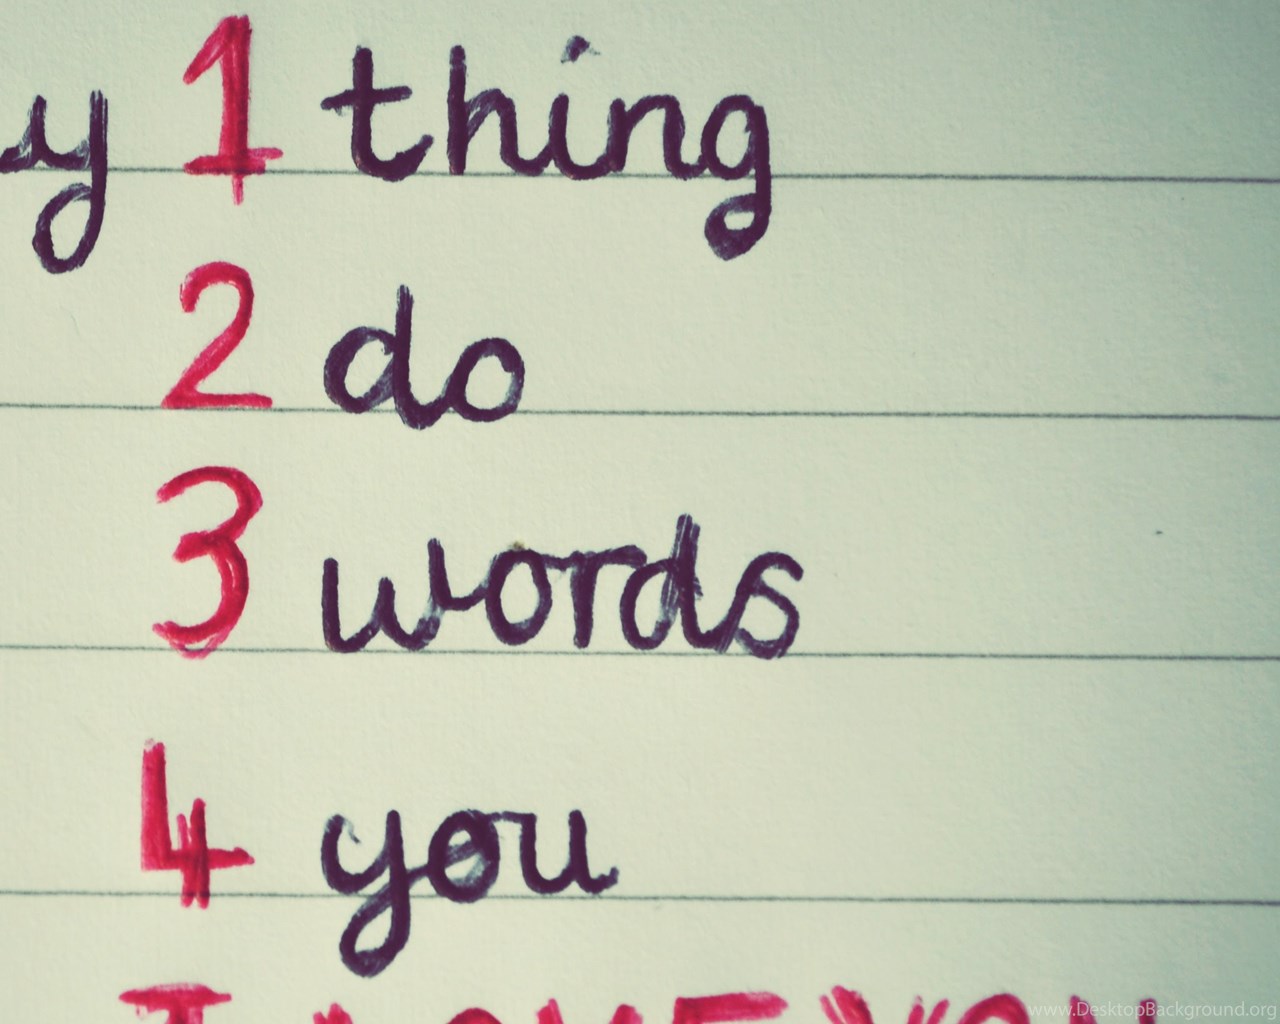 y 1 thing
2 do
3 words
4 you
I LOVE YOU
www.DesktopBackground.org